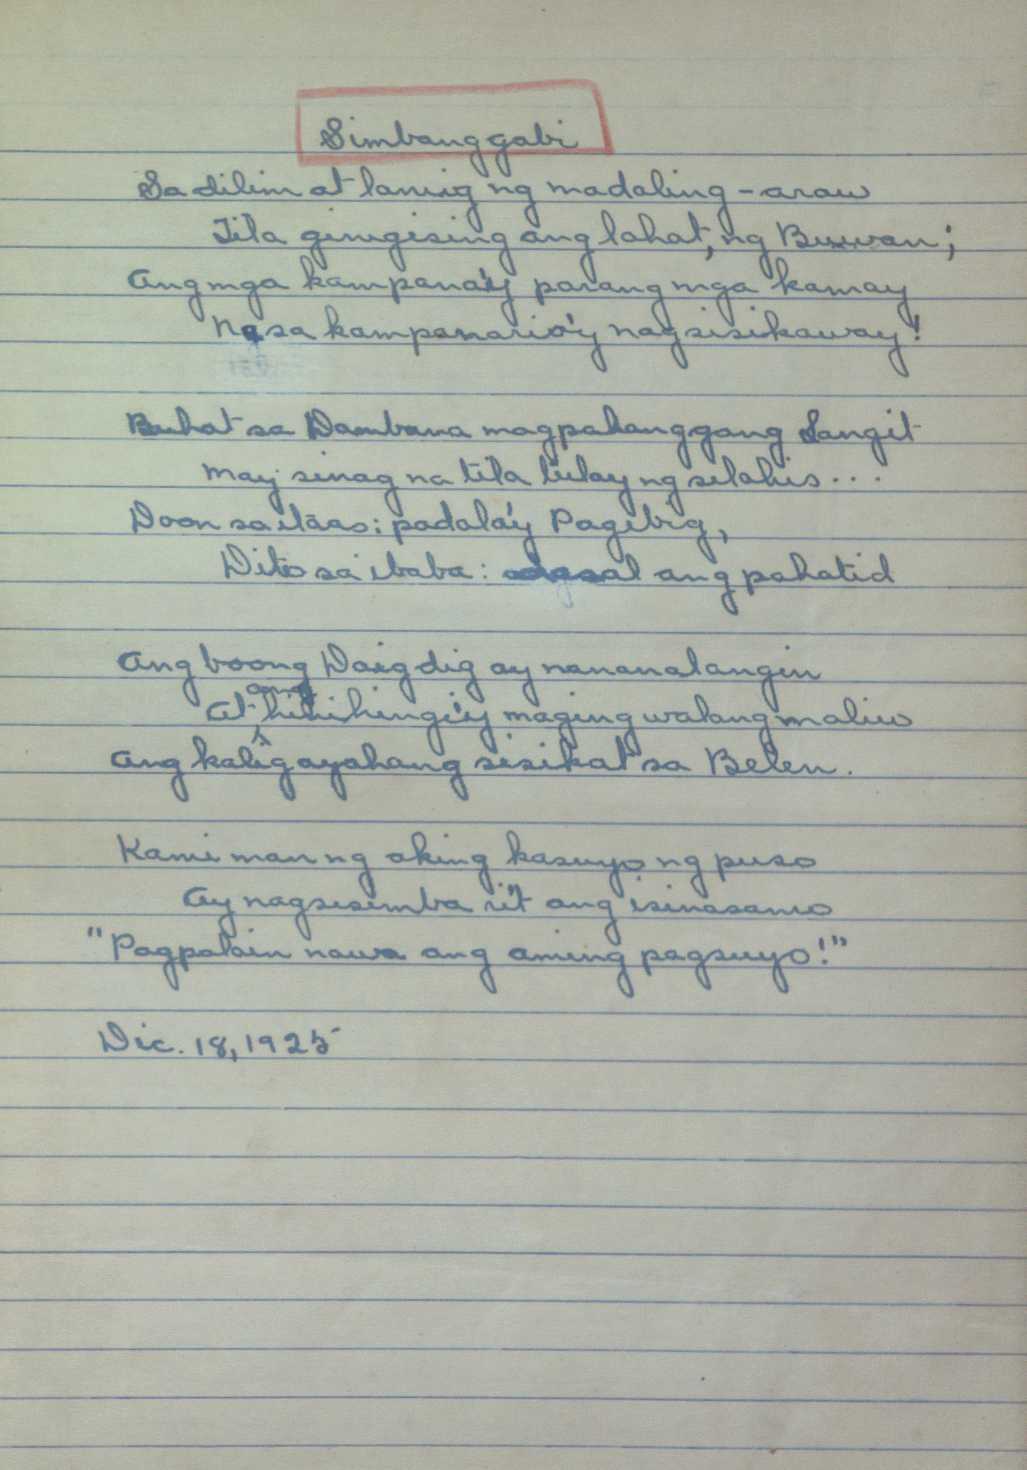 Simbanggabi
Sa dilim at lamig ng madaling-araw
Tila ginigising ang lahat, ng Buwan;
Ang mga kampana'y parang mga kamay
Na sa kampanario'y nagsisikaway!
Buhat sa Dambana magpahanggang Langit
May sinag na tila tulay ng silahis...
Doon sa itaas: padala'y Pagibig,
Dito sa ibaba: dasal ang pahatid
Ang boong Daigdig ay nananalangin
At ang hinihingi'y maging walang maliw
Ang kaligayahang sisikat sa Belen.
Kami man ng aking kasuyo ng puso
Ay nagsisimba rin't ang isinasamo
"Pagpalain nawa ang aming pagsuyo!"
Dic. 18, 1925